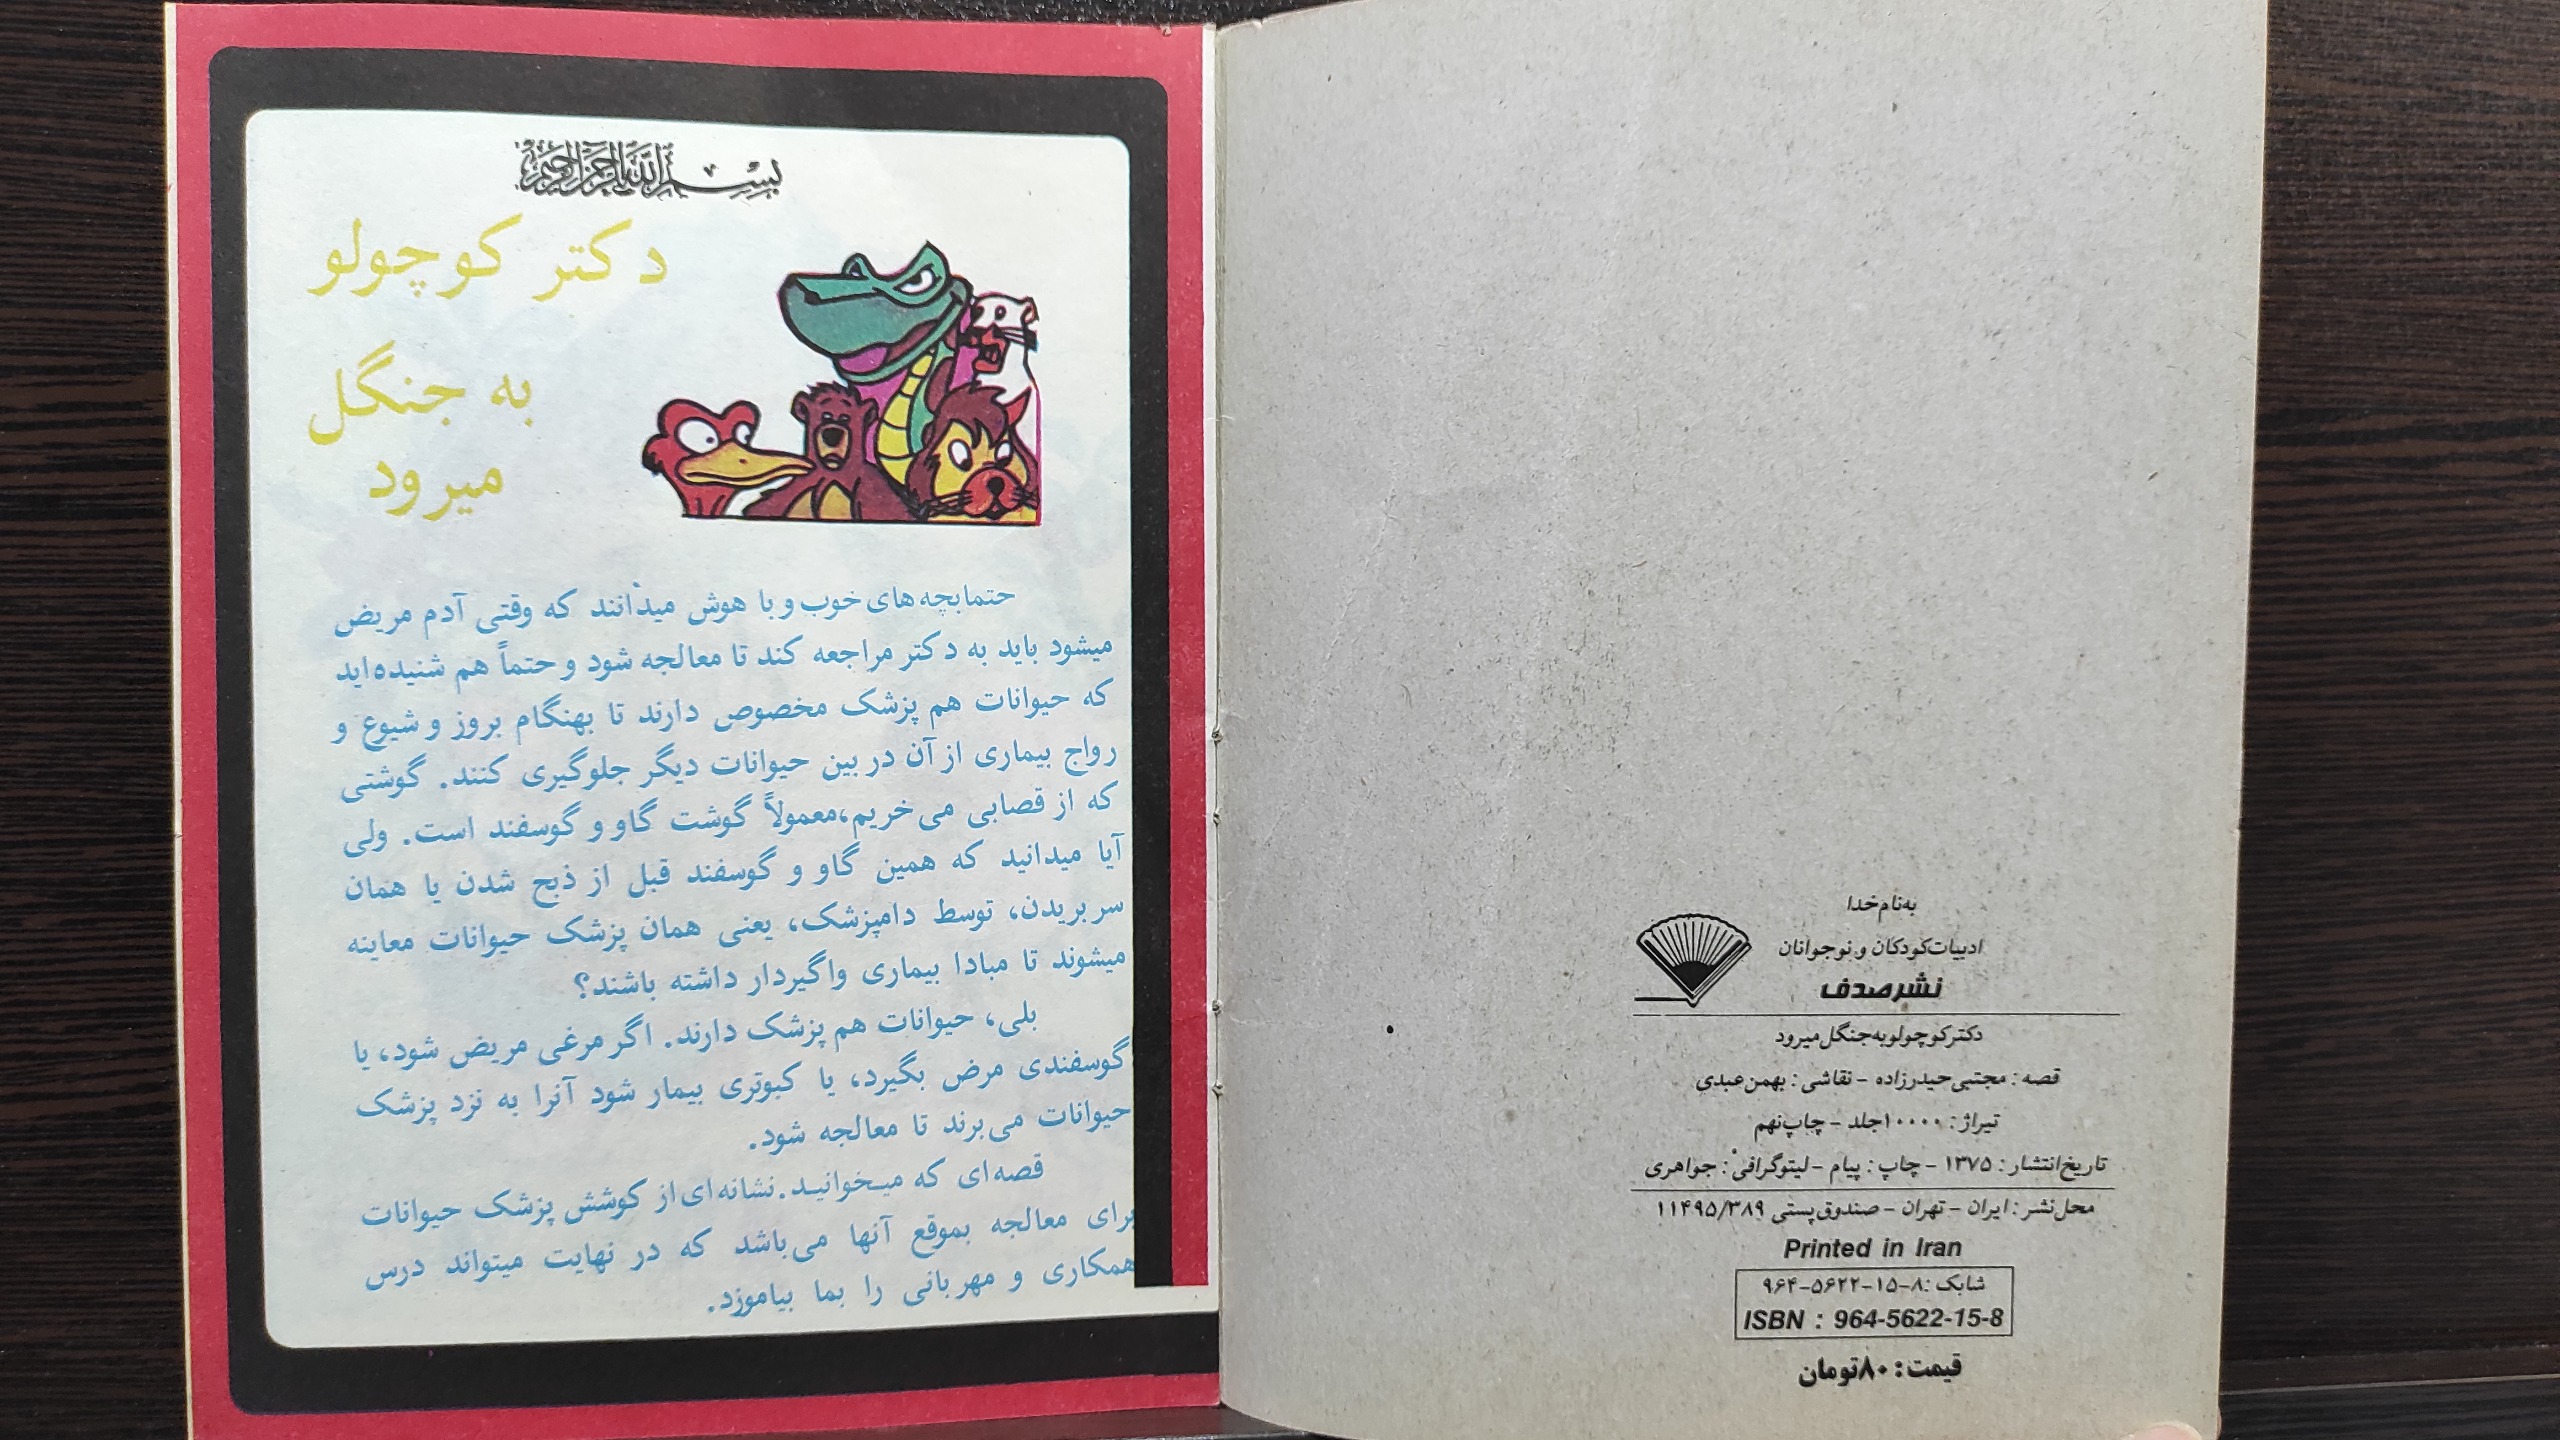 به نام خدا
ادبیات کودکان و نوجوانان
نشر صدف
دکتر کوچولو به جنگل میرود
قصه : مجتبی حیدرزاده - نقاشی : بهمن عبدی
تیراژ : ۱۰۰۰۰ جلد - چاپ نهم
تاریخ انتشار : ۱۳۷۵ - چاپ : پیام - لیتوگرافی : جواهری
محل نشر : ایران - تهران - صندوق پستی ۱۱۴۹۵/۳۸۹
Printed in Iran
شابک : ۸-۱۵-۵۶۲۲-۹۶۴
ISBN : 964-5622-15-8
قیمت : ۸۰ تومان
بسم الله الرحمن الرحیم
دکتر کوچولو
به جنگل
میرود
حتما بچه های خوب و با هوش میدانند که وقتی آدم مریض
میشود باید به دکتر مراجعه کند تا معالجه شود و حتماً هم شنیده اید
که حیوانات هم پزشک مخصوص دارند تا بهنگام بروز و شیوع و
رواج بیماری از آن در بین حیوانات دیگر جلوگیری کنند. گوشتی
که از قصابی می خریم، معمولاً گوشت گاو و گوسفند است. ولی
آیا میدانید که همین گاو و گوسفند قبل از ذبح شدن یا همان
سر بریدن، توسط دامپزشک، یعنی همان پزشک حیوانات معاینه
میشوند تا مبادا بیماری واگیردار داشته باشند؟
بلی، حیوانات هم پزشک دارند. اگر مرغی مریض شود، یا
گوسفندی مرض بگیرد، یا کبوتری بیمار شود آنرا به نزد پزشک
حیوانات می برند تا معالجه شود.
قصه ای که میخوانید. نشانه ای از کوشش پزشک حیوانات
برای معالجه بموقع آنها می باشد که در نهایت میتواند درس
همکاری و مهربانی را بما بیاموزد.